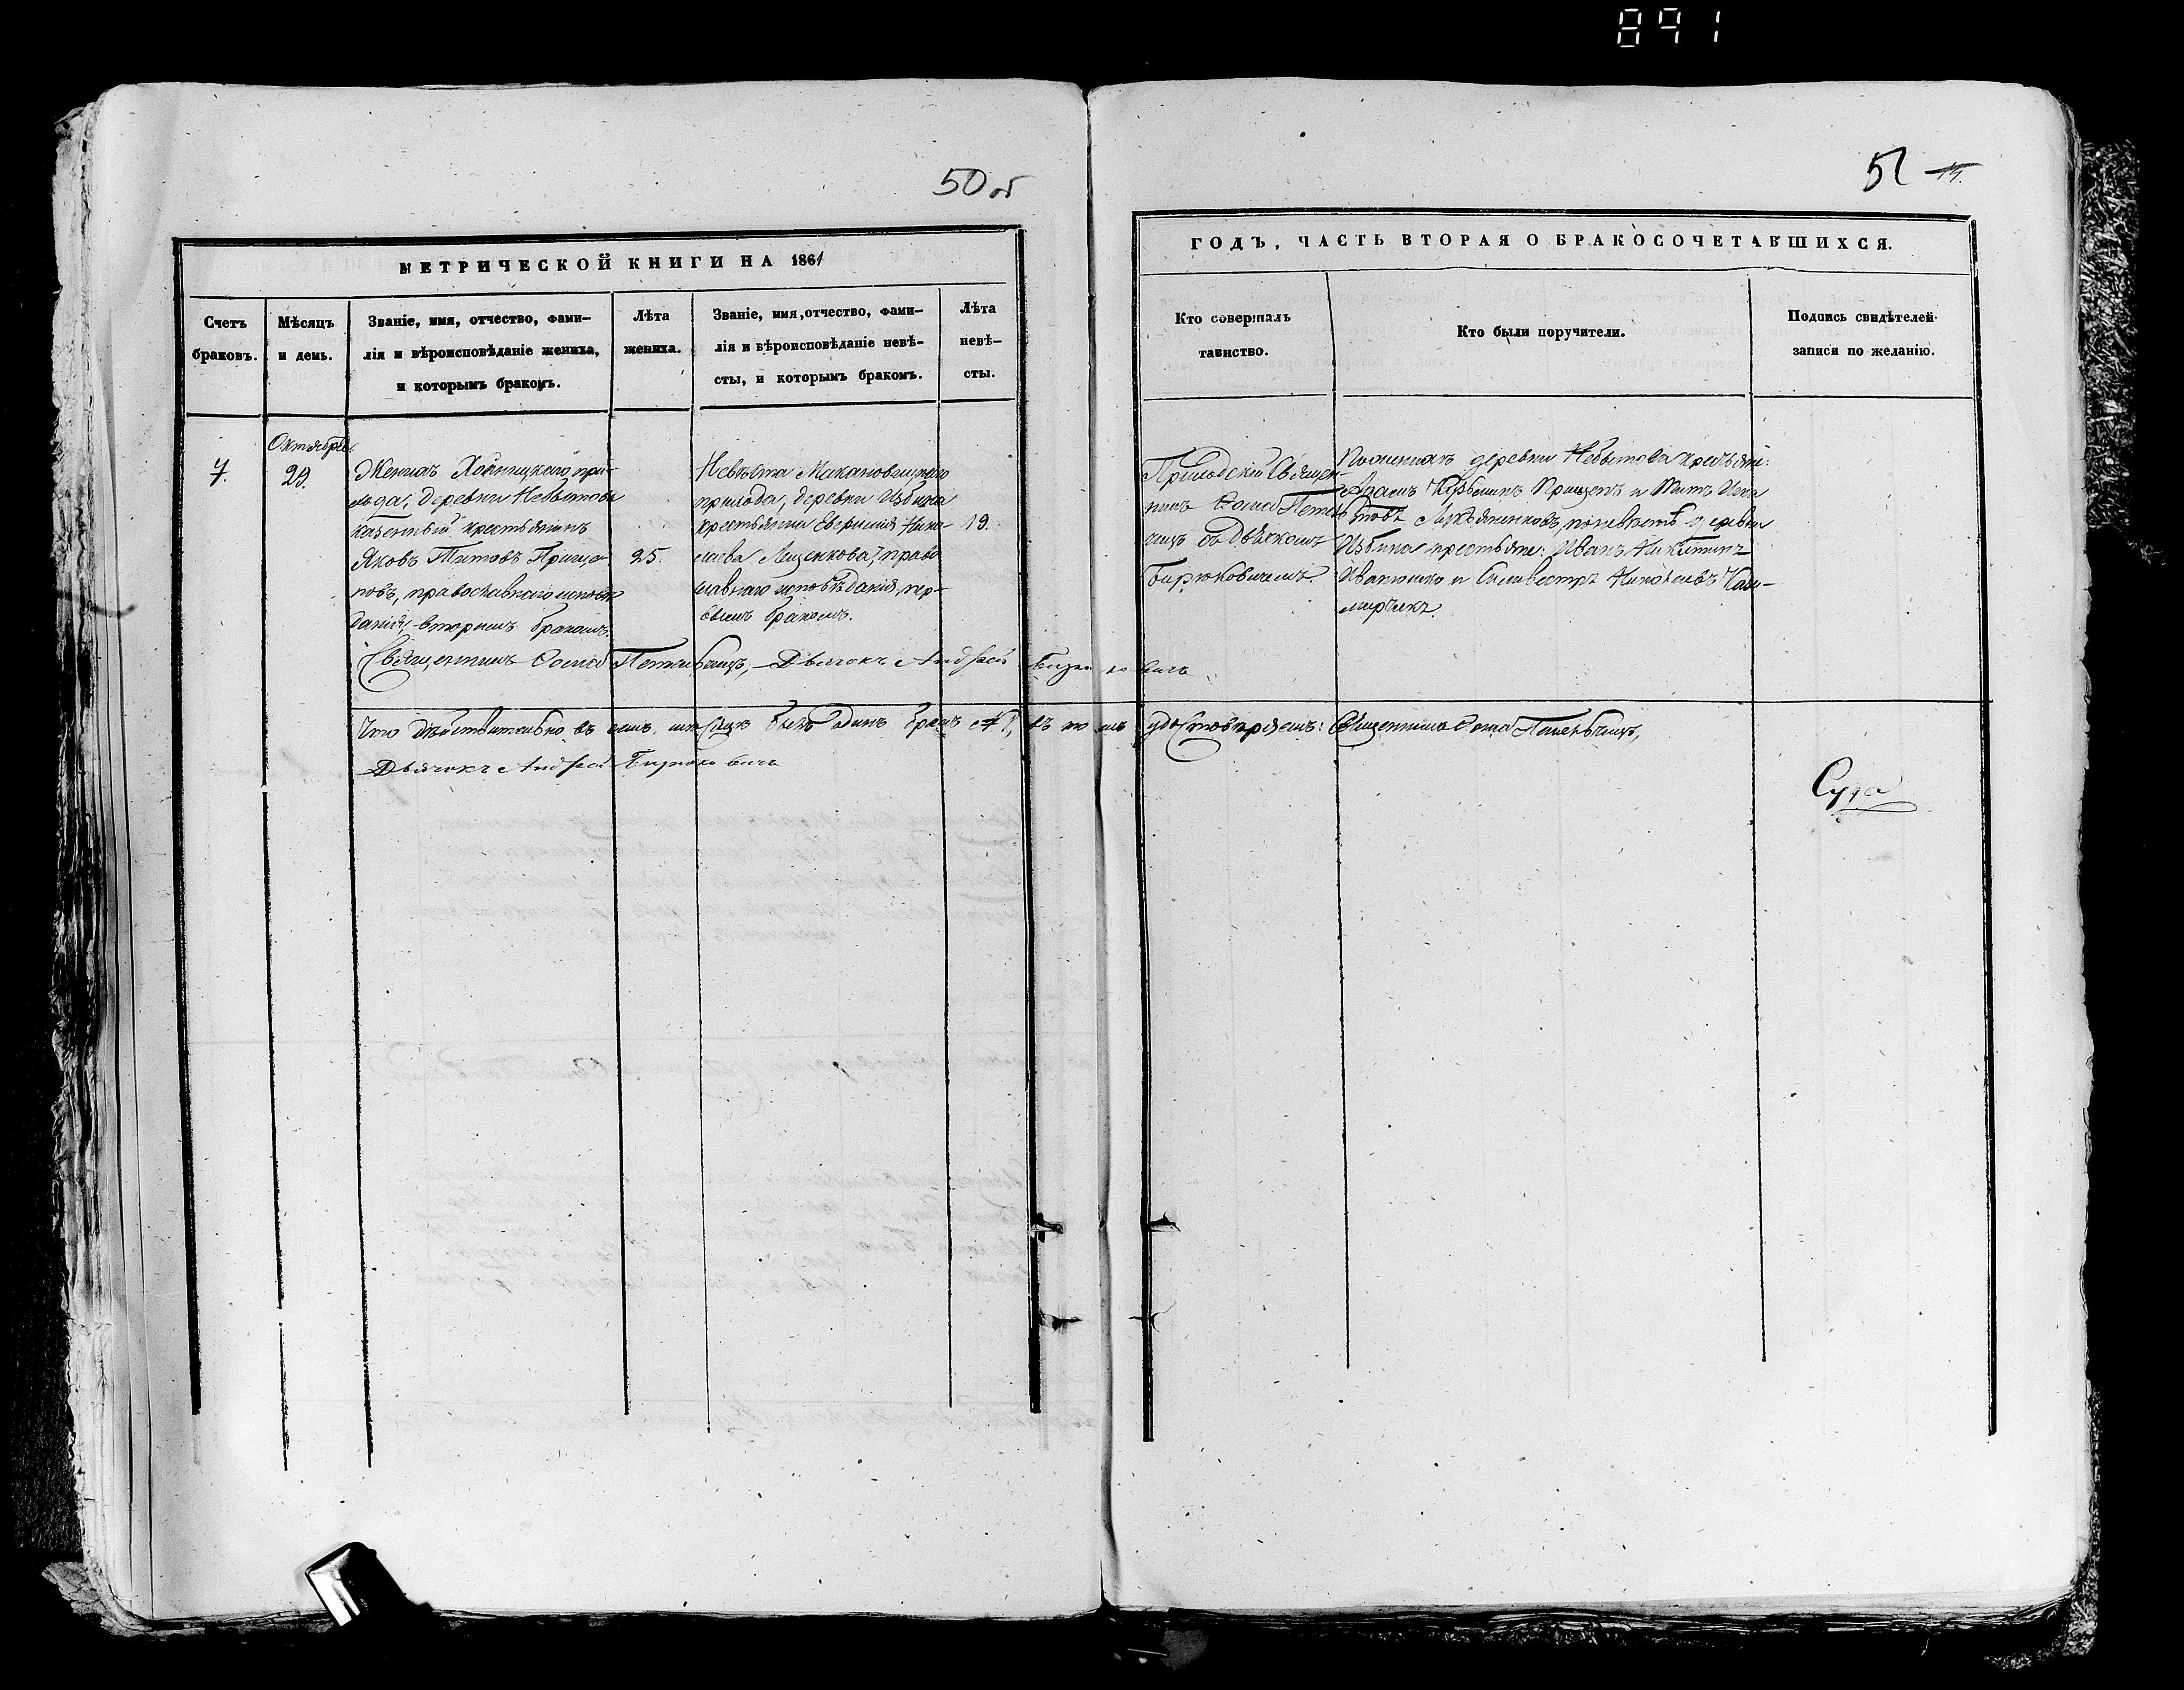 891
50 об
51 14.
МЕТРИЧЕСКОЙ КНИГИ НА 1861
ГОДЪ, ЧАСТЬ ВТОРАЯ О БРАКОСОЧЕТАВШИХСЯ.
Счетъ браковъ.
Мѣсяцъ и день.
Званіе, имя, отчество, фами-
лія и вѣроисповѣданіе жениха,
и которымъ бракомъ.
Лѣта жениха.
Званіе, имя, отчество, фами-
лія и вѣроисповѣданіе невѣ-
сты, и которымъ бракомъ.
Лѣта невѣ-
сты.
Кто совершалъ
таинство.
Кто были поручители.
Подпись свидѣтелей
записи по желанію.
7.
Октября
29.
Женихъ Хойницкаго при-
хода, деревни Небытова
казенный крестьянинъ
Яковъ Титовъ Прищѣ
повъ, православнаго исповѣ
данія, вторымъ бракомъ.
25.
Невѣста Макановицкаго
прихода, деревни Избина
крестьянка Евфимія Нико-
лаева Лещенкова, право
славнаго исповѣданія, пер-
вымъ бракомъ.
19.
Приходскій Священ-
никъ Фома
съ Дьячкомъ
Бирюковичемъ.
По женихѣ деревни Небытова крестьяне:
Прищепъ и Титъ
по невѣстѣ деревни
Избина крестьяне: Иванъ Никитинъ
Иванюшко и Сильвестръ Николаевъ
Священникъ Фома
Дьячокъ Андрей Бирюковичъ
Что дѣйствительно въ семъ мѣсяцѣ былъ одинъ бракъ № 1, въ томъ удостовѣряемъ: Священникъ Фома
Дьячокъ Андрей Бирюковичъ
Суда